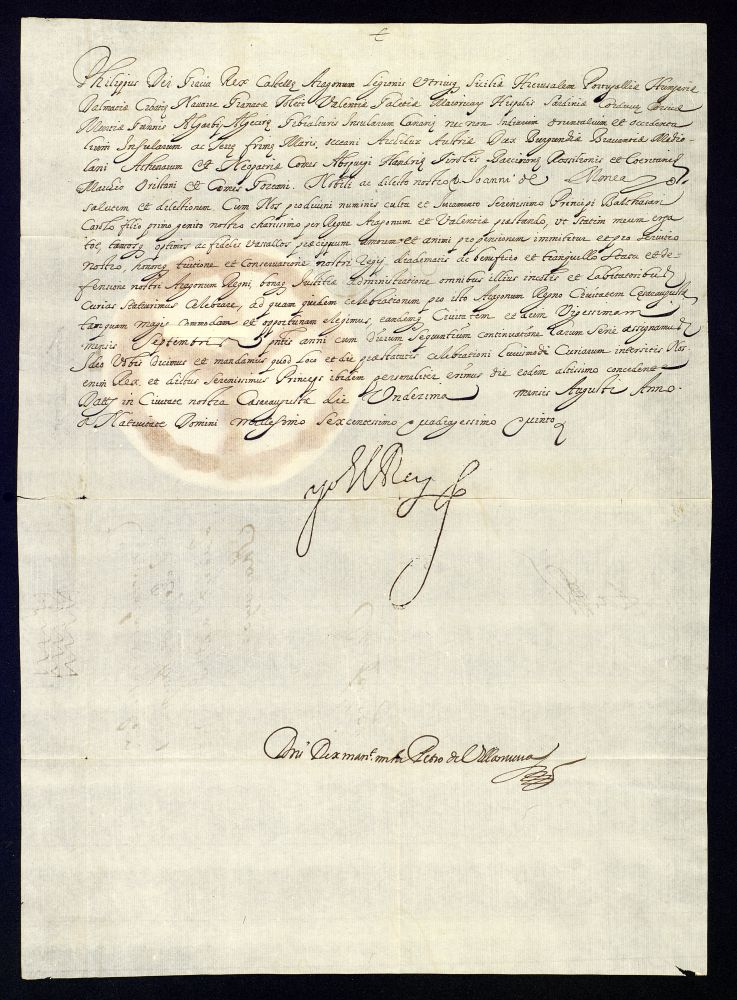 Philippus Dei Gracia Rex Castellę Aragonum Legionis Utriusq Siciliæ Hierusalem Portugalliæ Hungariæ
Dalmatiæ Croatię Navarræ Granatæ Toleti Valentiæ Galetiæ Maioricarū Hispalis Sardiniæ Cordubæ Corsicæ
Murtiæ Giennis Algarbij Algecirę Gibraltaris Insularum Canarię nec non Indiarum orientalium et occidenta
lium Insularum ac Terrę firmę Maris, occeani Archidux Austriæ Dux Burgundiæ Bravantiæ Medio-
lani Athenarum et Neopatriæ Comes Abspurgi Flandrię Tirolis Barcinonę Rossilionis et Coeritanię
Marchio Oristani et Comes Goceani. Nobili ac dilecto nostro D. Joanni de
salutem et dilectionem Cum Nos prodivini numinis cultu et Iuramento Serenissimo Principi Balthasari
Carlo filio primo genito nostro charissimo per Regna Aragonum et Valentiæ præstando, ut statim meum erga
tot, tamorq optimos ac fideles vasallos præcipuum amorem et animi propensionem immitetur et pro servitio
nostro, honorę tuitione et Conservatione nostri Regij diadematis ac benefitio et tranquillo statu et de-
fensione nostri Aragonum Regni, bonaq Iustitiæ administratione omnibus illius incolis et habitatoribus
Curias statuimus Celebrare, ad quam quidem celebrationem pro isto Aragonum Regno Civitatem Cesaraugustæ
tamquam magis Commodam et opportunam elegimus, eandemq Civitatem et diem Vigessimam
mensis Septembris pntis anni cum dierum Sequentium continuatione earum Serie assignamus
Ideo Vobis Dicimus et mandamus quod Loco et die præstatutis celebrationi huiusmodi Curiarum intersitis Nos
enim Rex et dictus Serenissimus Princeps ibidem personaliter erimus die eodem altissimo concedente
Datt in Civitate nostra Cæsaraugustæ die Undezima mensis Augusti Anno
a Nativitate Domini millessimo Sexcentesimo quadragessimo quinto
yo El Rey
Dns Rex mant. mihi Petro de Villanueva